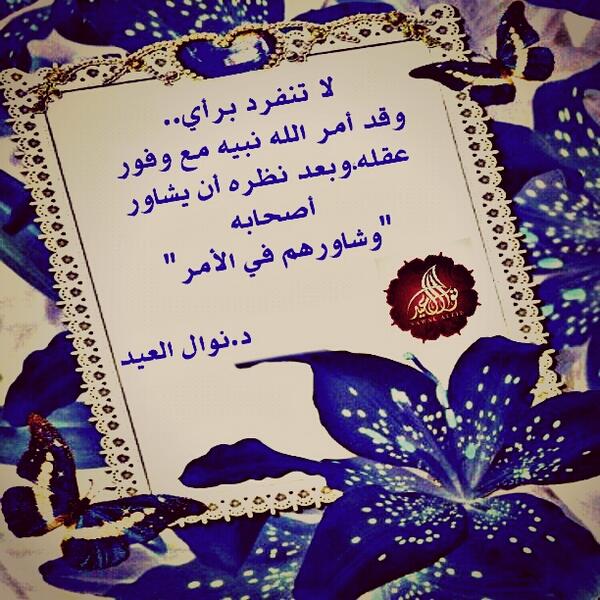 لا تنفرد برأي..
وقد أمر الله نبيه مع وفور
عقله.وبعد نظره أن يشاور
أصحابه
"وشاورهم في الأمر"
نوال العيد
NAWAL ALEID
د.نوال العيد